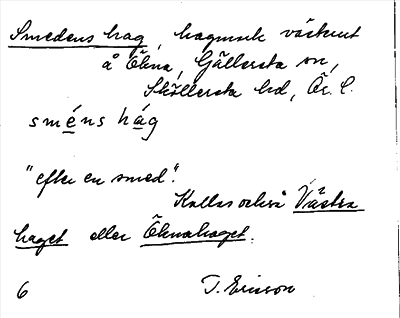 Smedens hag, hagmark västerut
å Ökna, Gällersta sn,
Sköllersta hd, Ör. l.
sméns hág
"efter en smed".
Kallas också Västra
haget eller Öknahaget.
6 T. Ericson